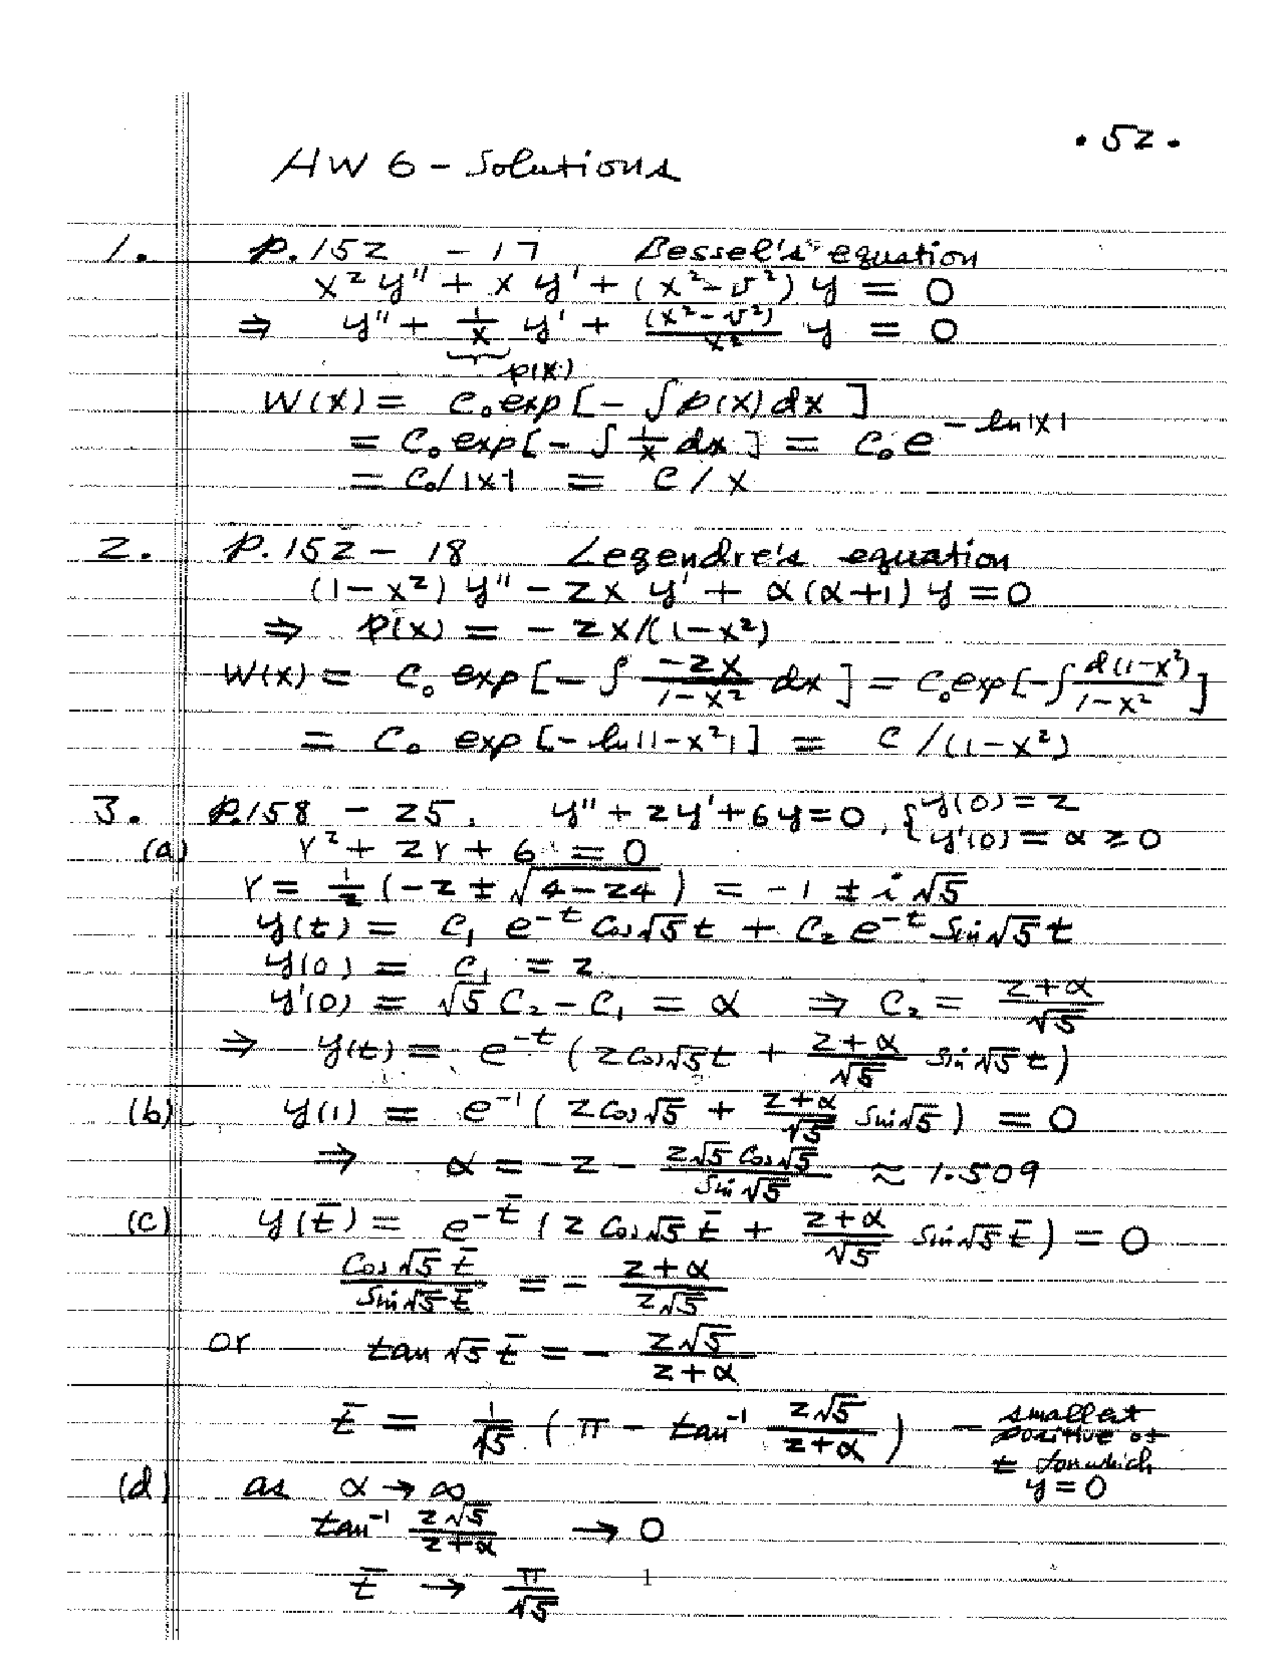 · 52 ·
HW 6 - Solutions
1. p.152 - 17 Bessel's equation
x² y'' + x y' + (x² - ν²) y = 0
⇒ y'' + 1/x y' + (x² - ν²)/x² y = 0
p(x)
W(x) = C₀ exp[- ∫ p(x) dx ]
= C₀ exp[- ∫ 1/x dx ] = C₀ e^{-ln|x|}
= C₀/|x| = C / x
2. p.152 - 18 Legendre's equation
(1-x²) y'' - 2x y' + α(α+1) y = 0
⇒ p(x) = - 2x/(1-x²)
W(x) = C₀ exp[- ∫ -2x/(1-x²) dx ] = C₀ exp[-∫ d(1-x²)/(1-x²) ]
= C₀ exp[-ln|1-x²|] = C /(1-x²)
3. p.158 - 25. y'' + 2y' + 6y = 0, { y(0) = 2
y'(0) = α ≥ 0
(a) r² + 2r + 6 = 0
r = 1/2 (-2 ± √(4-24)) = -1 ± i √5
y(t) = C₁ e^{-t} Cos√5 t + C₂ e^{-t} Sin√5 t
y(0) = C₁ = 2
y'(0) = √5 C₂ - C₁ = α ⇒ C₂ = (2+α)/√5
⇒ y(t) = e^{-t} (2 cos√5 t + (2+α)/√5 sin√5 t)
(b) y(1) = e^{-1} ( 2 Cos√5 + (2+α)/√5 Sin√5 ) = 0
⇒ α = -2 - 2√5 Cos√5 / Sin√5 ≈ 1.509
(c) y(t̄) = e^{-t̄} ( 2 Cos√5 t̄ + (2+α)/√5 Sin√5 t̄ ) = 0
Cos√5 t̄ / Sin√5 t̄ = - (2+α)/2√5
or tan √5 t̄ = - 2√5/(2+α)
t̄ = 1/√5 ( π - tan⁻¹ 2√5/(2+α) ) - smallest
positive of
t for which
y = 0
(d) as α → ∞
tan⁻¹ 2√5/(2+α) → 0
t̄ → π/√5
1